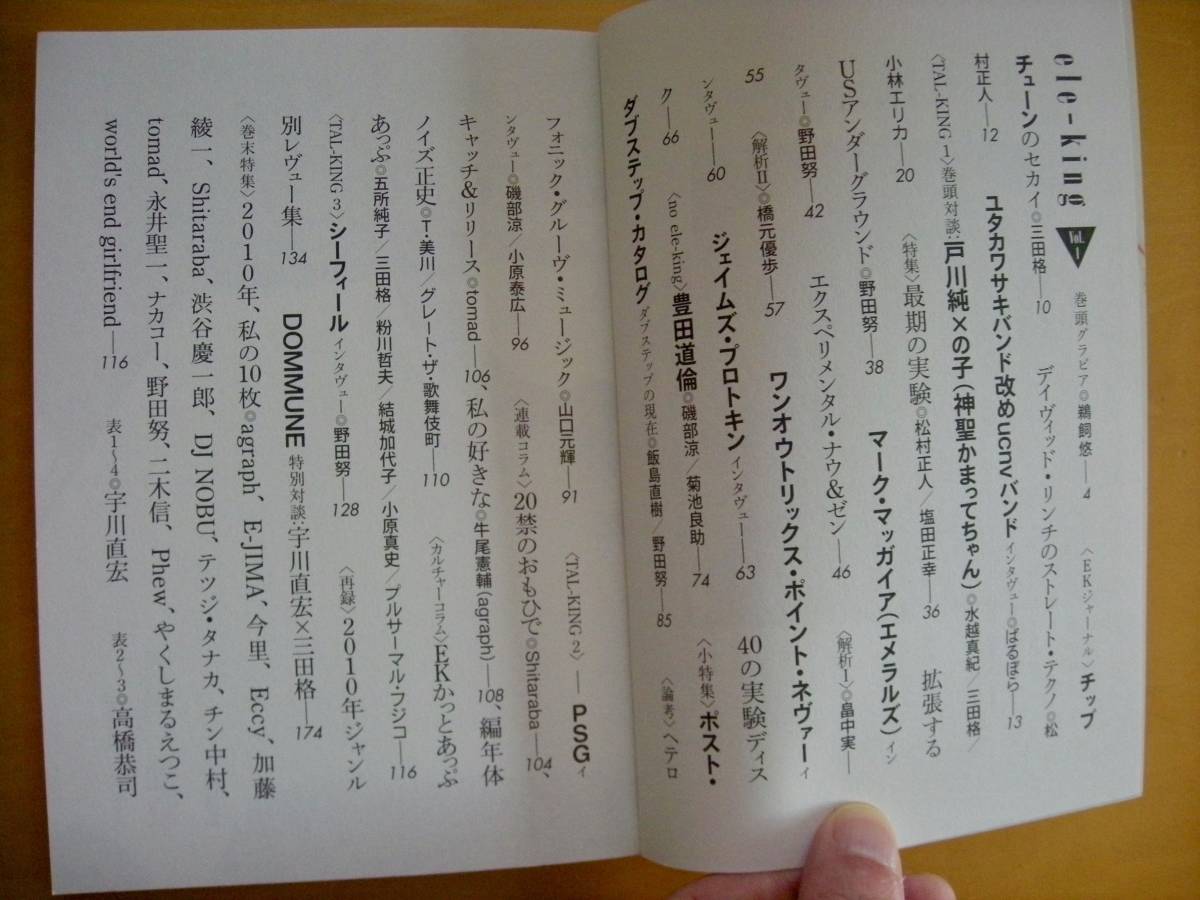 ele-king Vol.1　巻頭グラビア◎鵜飼悠——4　〈EKジャーナル〉チップ
チューンのセカイ◎三田格——10　デイヴィッド・リンチのストレート・テクノ◎松
村正人——12　ユタカワサキバンド改めucnvバンド インタヴュー◎ばるぼら——13
〈TAL-KING 1〉巻頭対談:戸川純×の子(神聖かまってちゃん)◎水越真紀/三田格/
小林エリカ——20　〈特集〉最期の実験◎松村正人/塩田正幸——36　拡張する
USアンダーグラウンド◎野田努——38　マーク・マッガイア(エメラルズ)イン
タヴュー◎野田努——42　エクスペリメンタル・ナウ&ゼン——46　〈解析I〉◎畠中実——
55　〈解析II〉◎橋元優歩——57　ワンオウトリックス・ポイント・ネヴァー イ
ンタヴュー——60　ジェイムズ・プロトキン インタヴュー——63　40の実験ディス
ク——66　〈no ele-king〉豊田道倫◎磯部涼/菊池良助——74　〈小特集〉ポスト・
ダブステップ・カタログ ダブステップの現在◎飯島直樹/野田努——85　〈論考〉ヘテロ
フォニック・グルーヴ・ミュージック◎山口元輝——91　〈TAL-KING 2〉——PSG イ
ンタヴュー◎磯部涼/小原泰広——96　〈連載コラム〉20禁のおもひで◎Shitaraba——104、
キャッチ&リリース◎tomad——106、私の好きな◎牛尾憲輔(agraph)——108、編年体
ノイズ正史◎T・美川/グレート・ザ・歌舞伎町——110　〈カルチャーコラム〉EKかっとあっぷ
あっぷ◎五所純子/三田格/粉川哲夫/結城加代子/小原真史/プルサーマル・フジコ——116
〈TAL-KING 3〉シーフィール インタヴュー◎野田努——128　〈再録〉2010年ジャンル
別レヴュー集——134　DOMMUNE 特別対談:宇川直宏×三田格——174
〈巻末特集〉2010年、私の10枚◎agraph、E-JIMA、今里、Eccy、加藤
綾一、Shitaraba、渋谷慶一郎、DJ NOBU、テツジ・タナカ、チン中村、
tomad、永井聖一、ナカコー、野田努、二木信、Phew、やくしまるえつこ、
world's end girlfriend——116　表1〜4◎宇川直宏　表2〜3◎高橋恭司